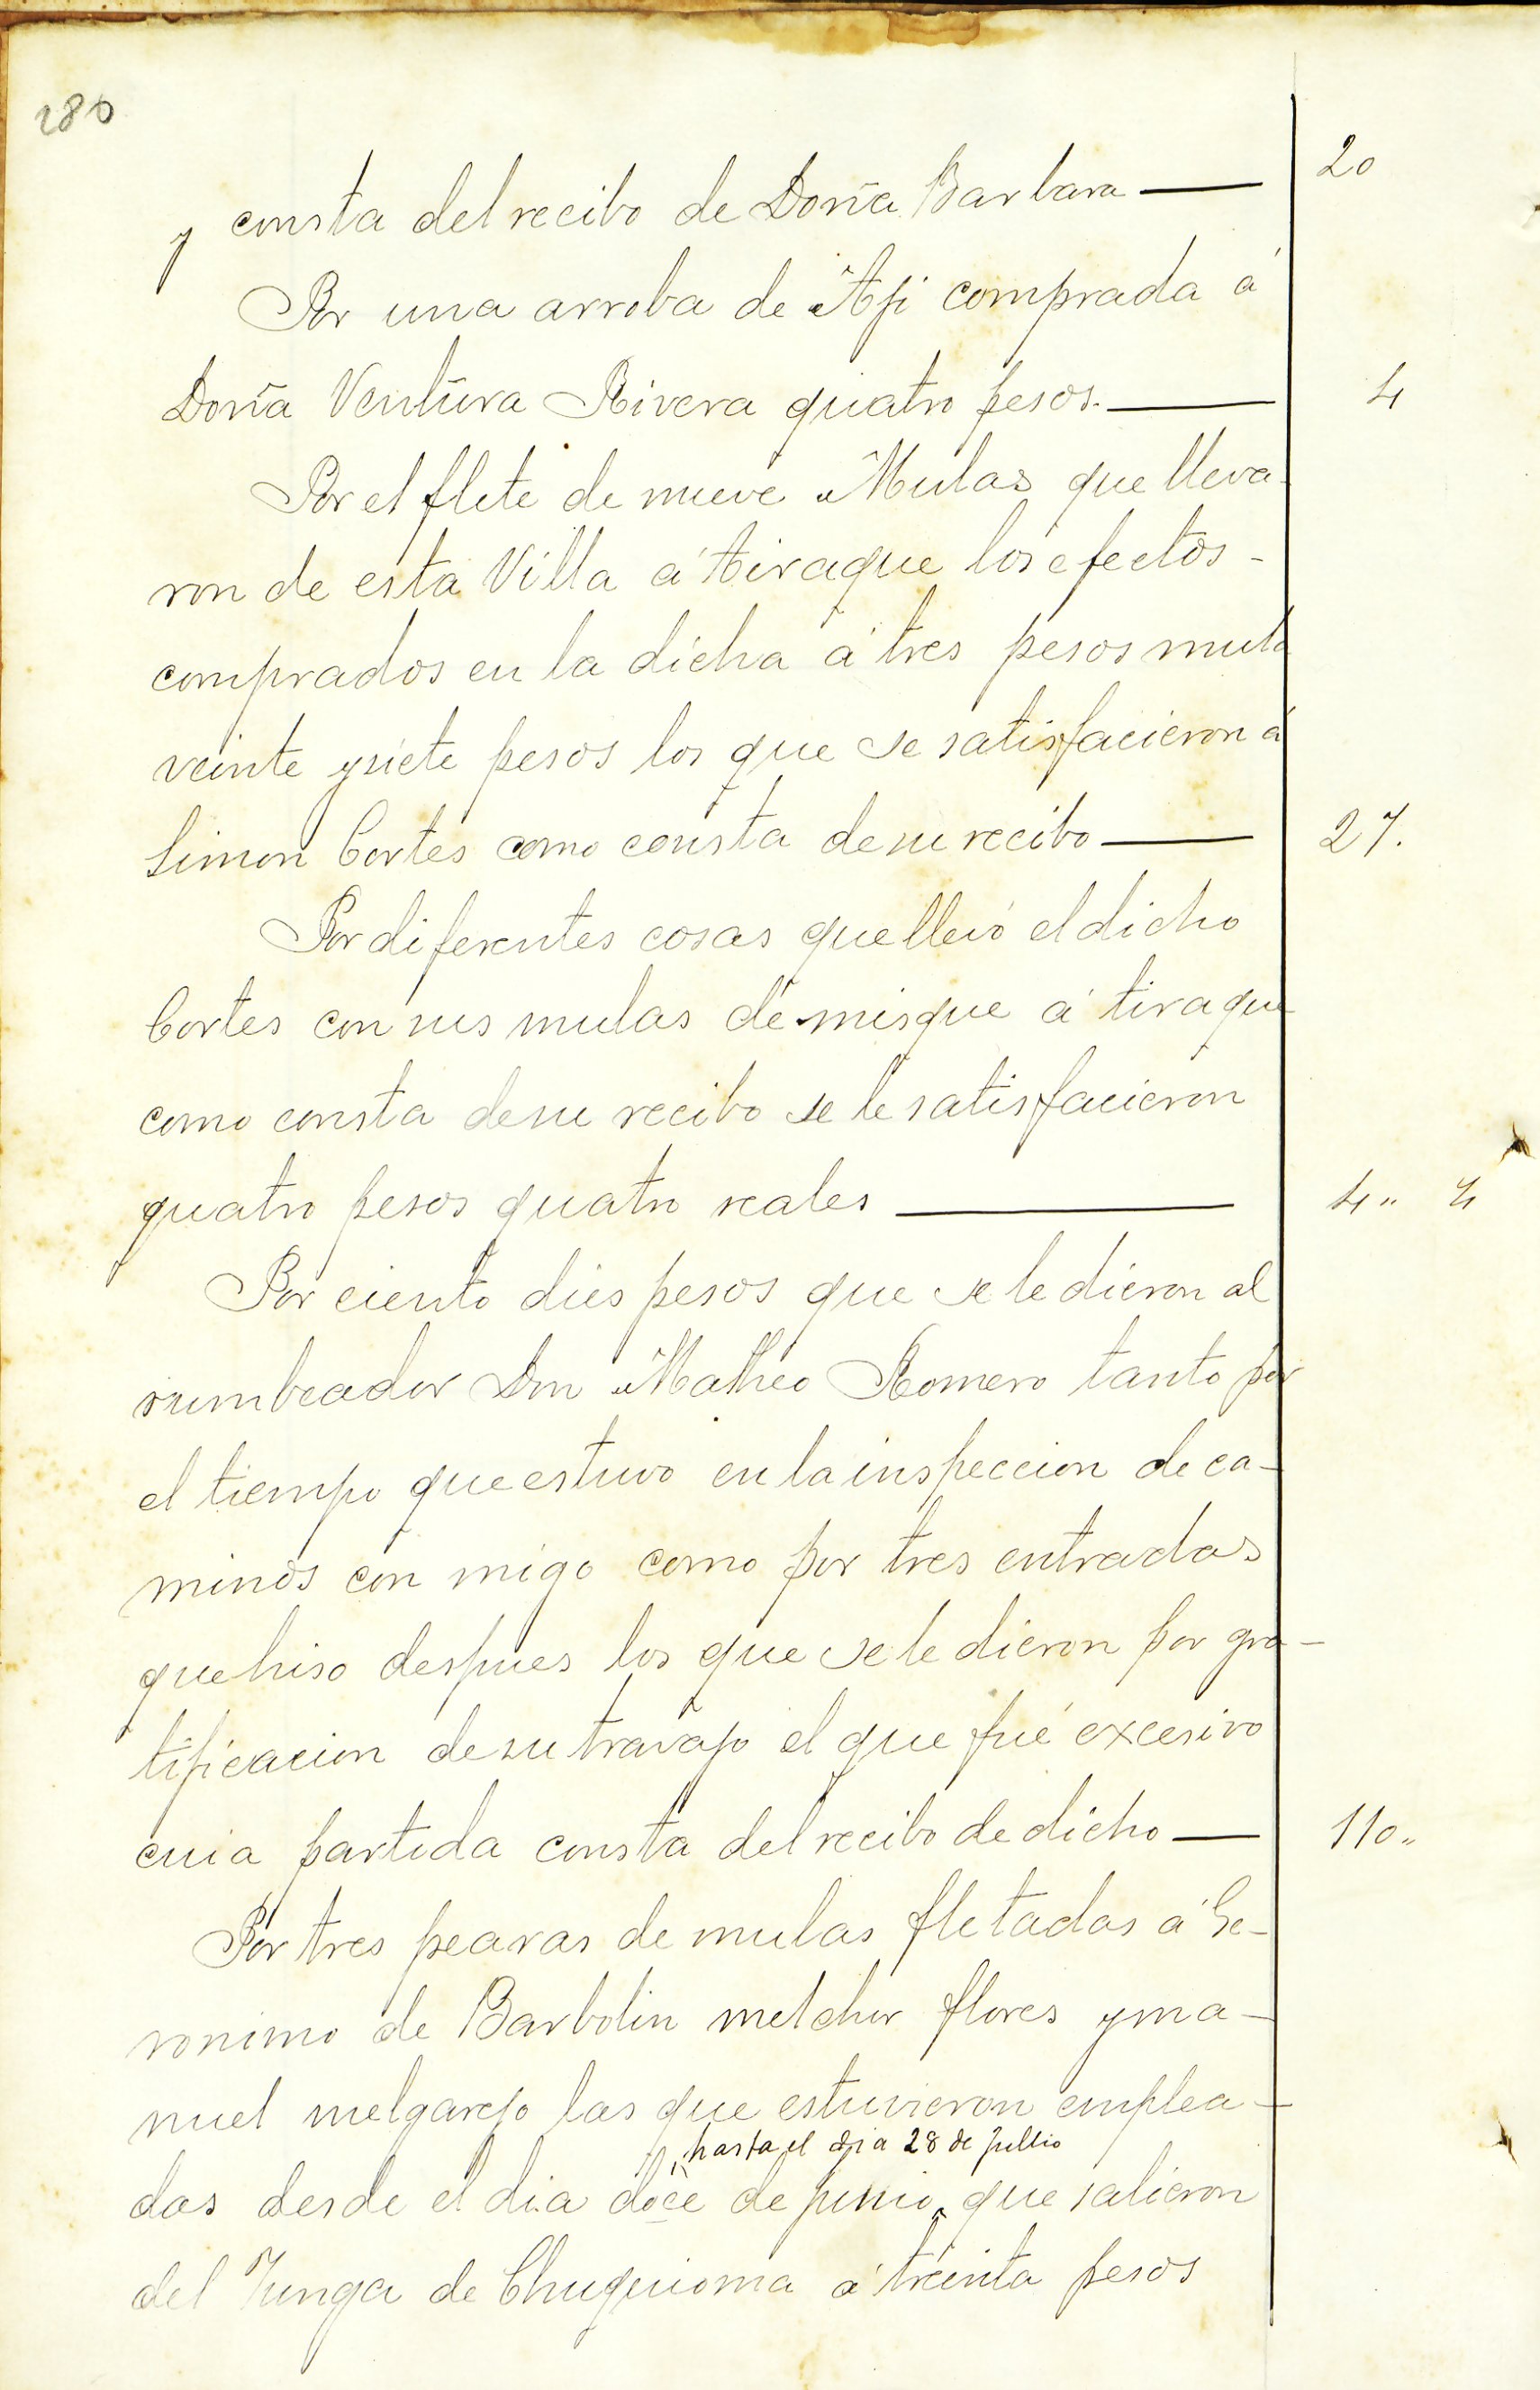 280
y consta del recibo de Doña Barbara — 20
Por una arroba de Aji comprada á
Doña Ventura Rivera quatro pesos. — 4
Por el flete de nueve Mulas que lleva-
ron de esta Villa á tiraque los efectos -
comprados en la dicha á tres pesos mula
veinte y siete pesos los que se satisfacieron á
Simon Cortes como consta de su recibo — 27.
Por diferentes cosas que llevó el dicho
Cortes con sus mulas de misque á tiraque
como consta de su recibo se le satisfacieron
quatro pesos quatro reales — 4" 4
Por ciento dies pesos que se le dieron al
rumbeador Don Matheo Romero tanto por
el tiempo que estuvo en la inspeccion de ca-
minos con migo como por tres entradas
que hiso despues los que se le dieron por gra-
tificacion de su travajo el que fué excesivo
cuia partida consta del recibo de dicho — 110"
Por tres pearas de mulas fletadas á Ge-
ronimo de Barbolin melchor flores y ma-
nuel melgarejo las que estuvieron emplea-
hasta el dia 28 de Jullio
das desde el dia doce de junio que salieron
del Yunga de Chuquioma á treinta pesos